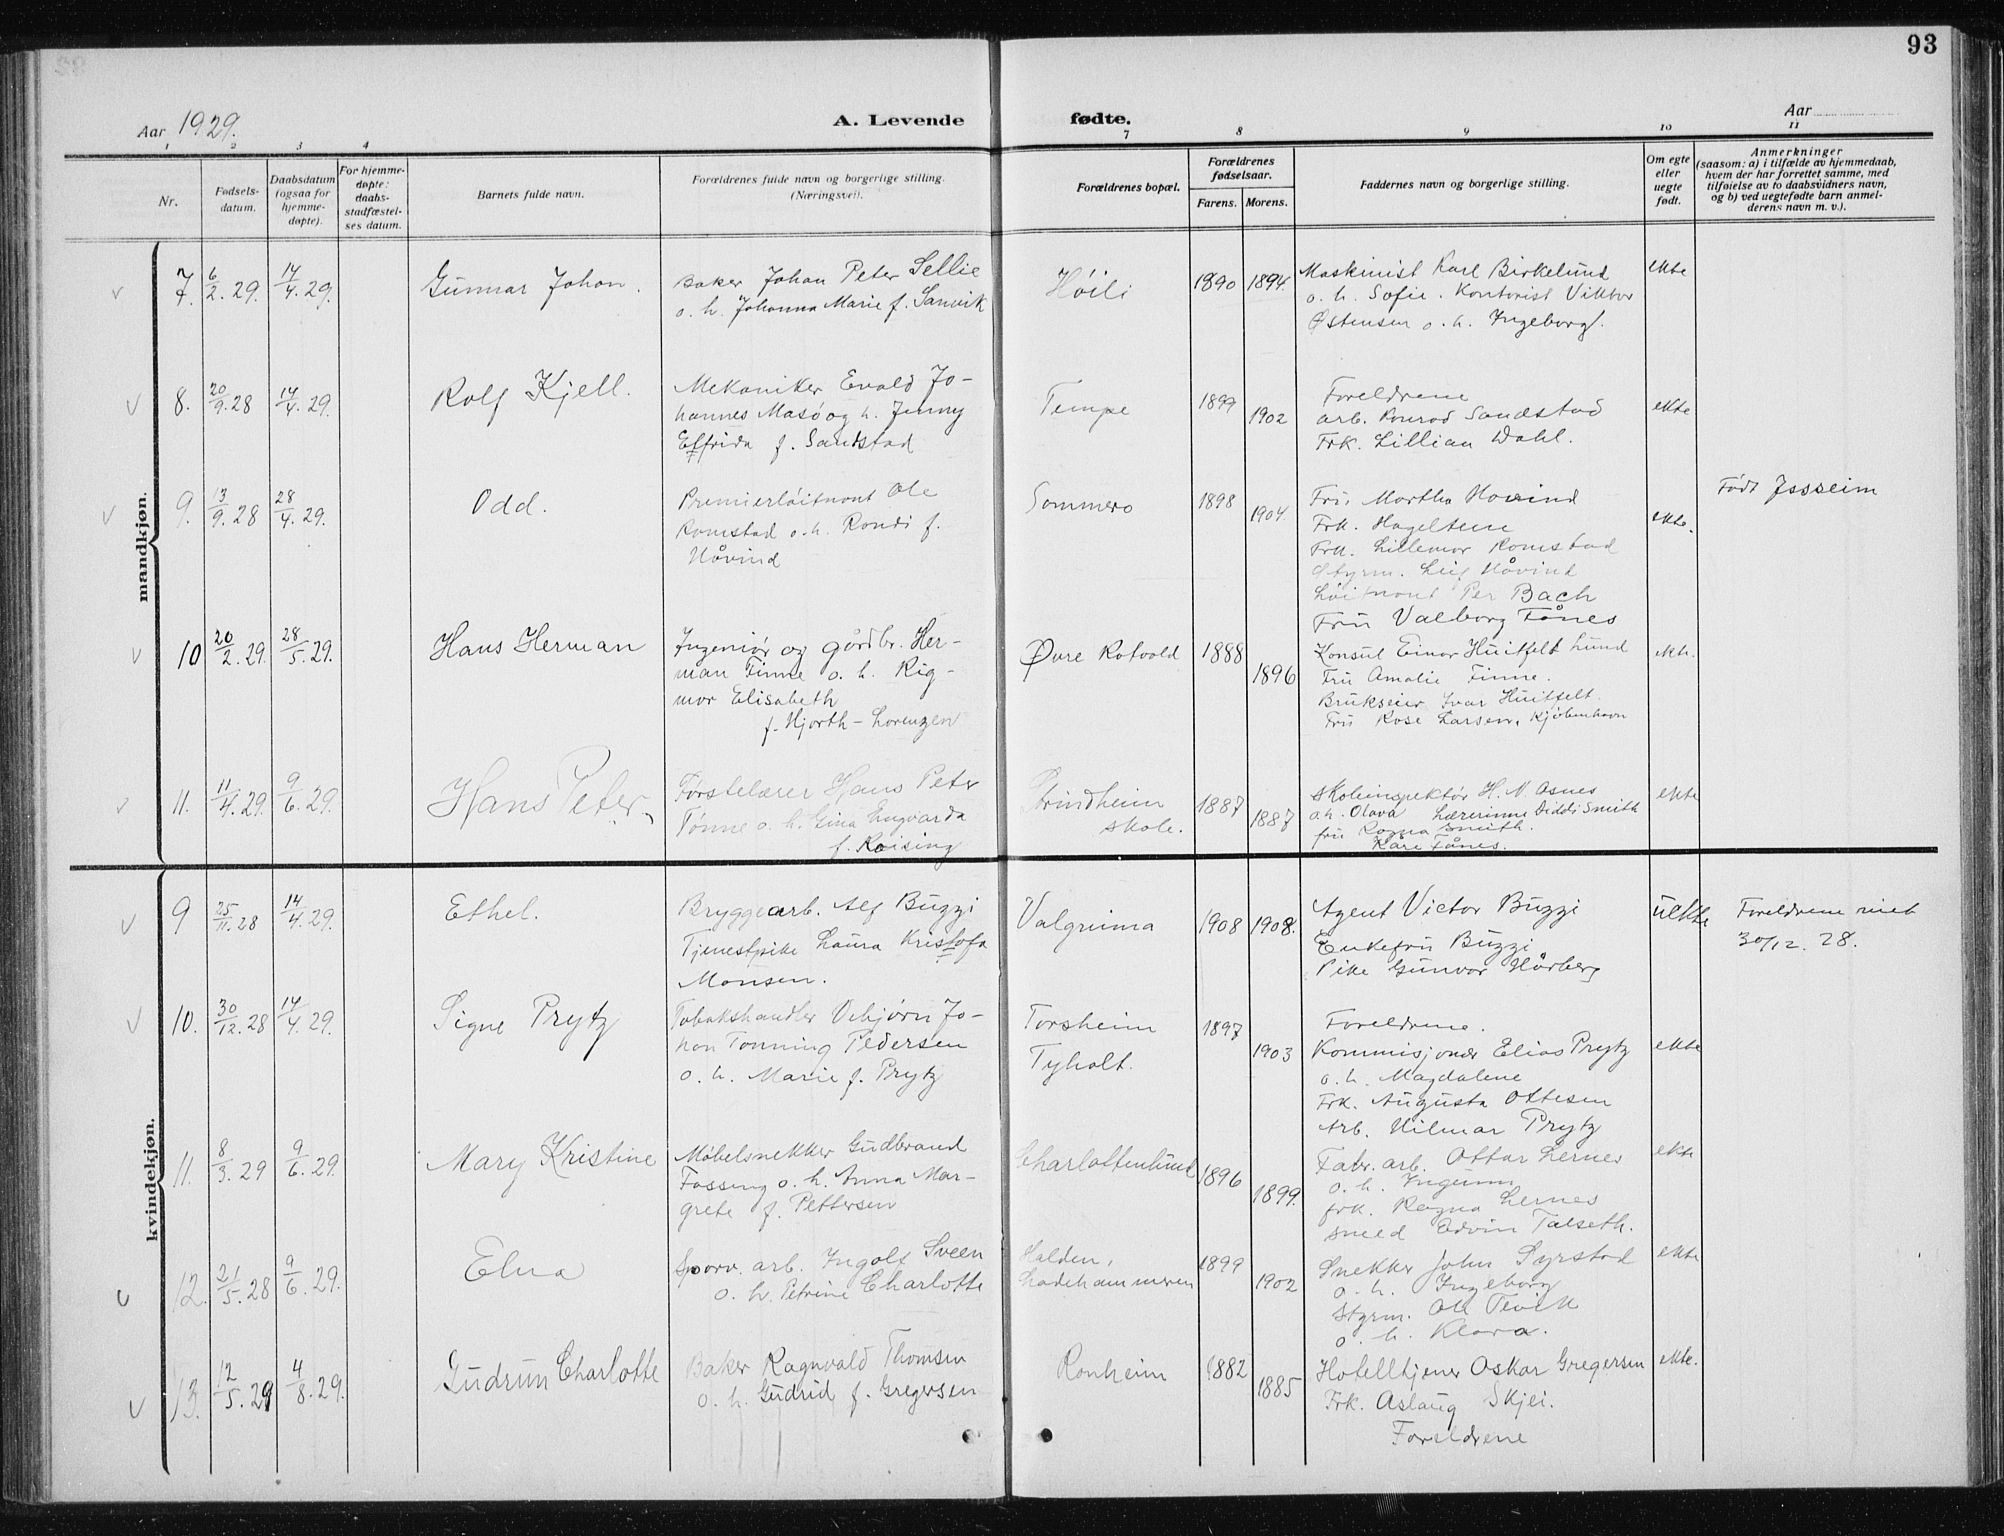 93
Aar 1929.
A. Levende fødte.
Aar
1 2 3 4 7 8 9 10 11
Nr.
Fødsels-
datum.
Daabsdatum
(ogsaa for
hjemme-
døpte).
For hjemme-
døpte:
daabs-
stadfæstel-
ses datum.
Barnets fulde navn.
Forældrenes fulde navn og borgerlige stilling.
(Næringsvei).
Forældrenes bopæl.
Forældrenes
fødselsaar.
Farens. Morens.
Faddernes navn og borgerlige stilling.
Om egte
eller
uegte
født.
Anmerkninger
(saasom: a) i tilfælde av hjemmedaab,
hvem der har forrettet samme, med
tilføielse av to daabsvidners navn,
og b) ved uegtefødte barn anmel-
derens navn m. v.).
mandkjøn.
7. 6/2. 29. 14/4. 29. Gunnar Johan.
Baker Johan Peter Sellie
o. h. Johanna Marie f. Sanvik
Høili 1890 1894.
Maskinist Karl Birkelund
o. h. Sofie. Kontorist Viktor
Østensen o. h. Ingeborg.
ekte
8. 20/9. 28 14/4. 29. Rolf Kjell.
Mekaniker Evald Jo-
hannes Masø og h. Jenny
Elfrida f. Sandstad
Tempe 1899 1902
Foreldrene
Arb. Konrad Sandstad
Frk. Lillian Dahl.
ekte
9. 13/9. 28 28/4. 29. Odd.
Premierløitnant Ole
Romstad o. h. Randi f.
Håvind
Sommero 1898 1904
Fru Martha Hovind
Frk. Hageltene
Frk. Lillemor Romstad
Styrm. Leif Håvind
Løitnant Per Bach
Fru Valborg Fånes
ekte.
Født Jssheim
10 20/2. 29. 28/5. 29. Hans Herman
Ingeniør og gårdbr. Her-
man Finne o. h. Rig-
mor Elisabeth
f. Hjorth-Lorenzen
Øvre Rotvold 1888 1896
Konsul Einar Huitfelt Lund
Fru Amalie Finne.
Brukseier Ivar Huitfelt.
Fru Rose Larsen, Kjøbenhavn
ekte.
11. 11/4. 29. 9/6. 29. Hans Peter.
Førstelærer Hans Peter
Tønne o. h. Gina Engvarda
f. Røising
Strindheim
skole. 1887 1887
Skoleinspektør H. N. Asnes
o.h. Olava Lærerinne Diddi Smith
fru Ragna Smith.
Kåre Fånes.
ekte
kvindekjøn.
9 25/11. 28 14/4. 29. Ethel.
Bryggearb. Alf Buzzi
Tjenestpike Laura Kristofa
Monsen.
Valgrinna 1908 1908.
Agent Victor Buzzi
Enkefru Buzzi
Pike Gunvor Hårberg
uekte
Foreldrene viet
30/12. 28.
10. 30/12. 28 14/4. 29. Signe Prytz
Tobakshandler Vebjørn Jo-
han Tønning Pedersen
o. h. Marie f. Prytz
Torsheim
Tyholt. 1897 1903
Foreldrene.
Kommisjonær Elias Prytz
o. h. Magdalene
Frk. Augusta Ottesen
Arb. Hilmar Prytz
ekte
11. 8/3. 29 9/6. 29. Mary Kristine
Møbelsnekker Gudbrand
Fossing o. h. Anna Mar-
grete f. Pettersen
Charlottenlund 1896 1899.
Fabr. arb. Ottar Lernes
o. h. Ingunn
frk. Ragna Lernes
smed Edvin Talseth.
ekte
12. 21/5. 28 9/6. 29. Elna
Sporv. arb. Ingolf Sveen
o. h. Petrine Charlotte
Halden,
Ladehammeren 1899 1902
Snekker John Syrstad
o. h. Ingeborg
Styrm. Ole Tevik
o. h. Klara.
ekte
13. 12/5. 29 4/8. 29. Gudrun Charlotte
Baker Ragnvald Thomsen
o. h. Gudrid f. Gregersen
Ronheim 1882 1885
Hotelltjener Oskar Gregersen
Frk. Aslaug Skjei.
Foreldrene
ekte.